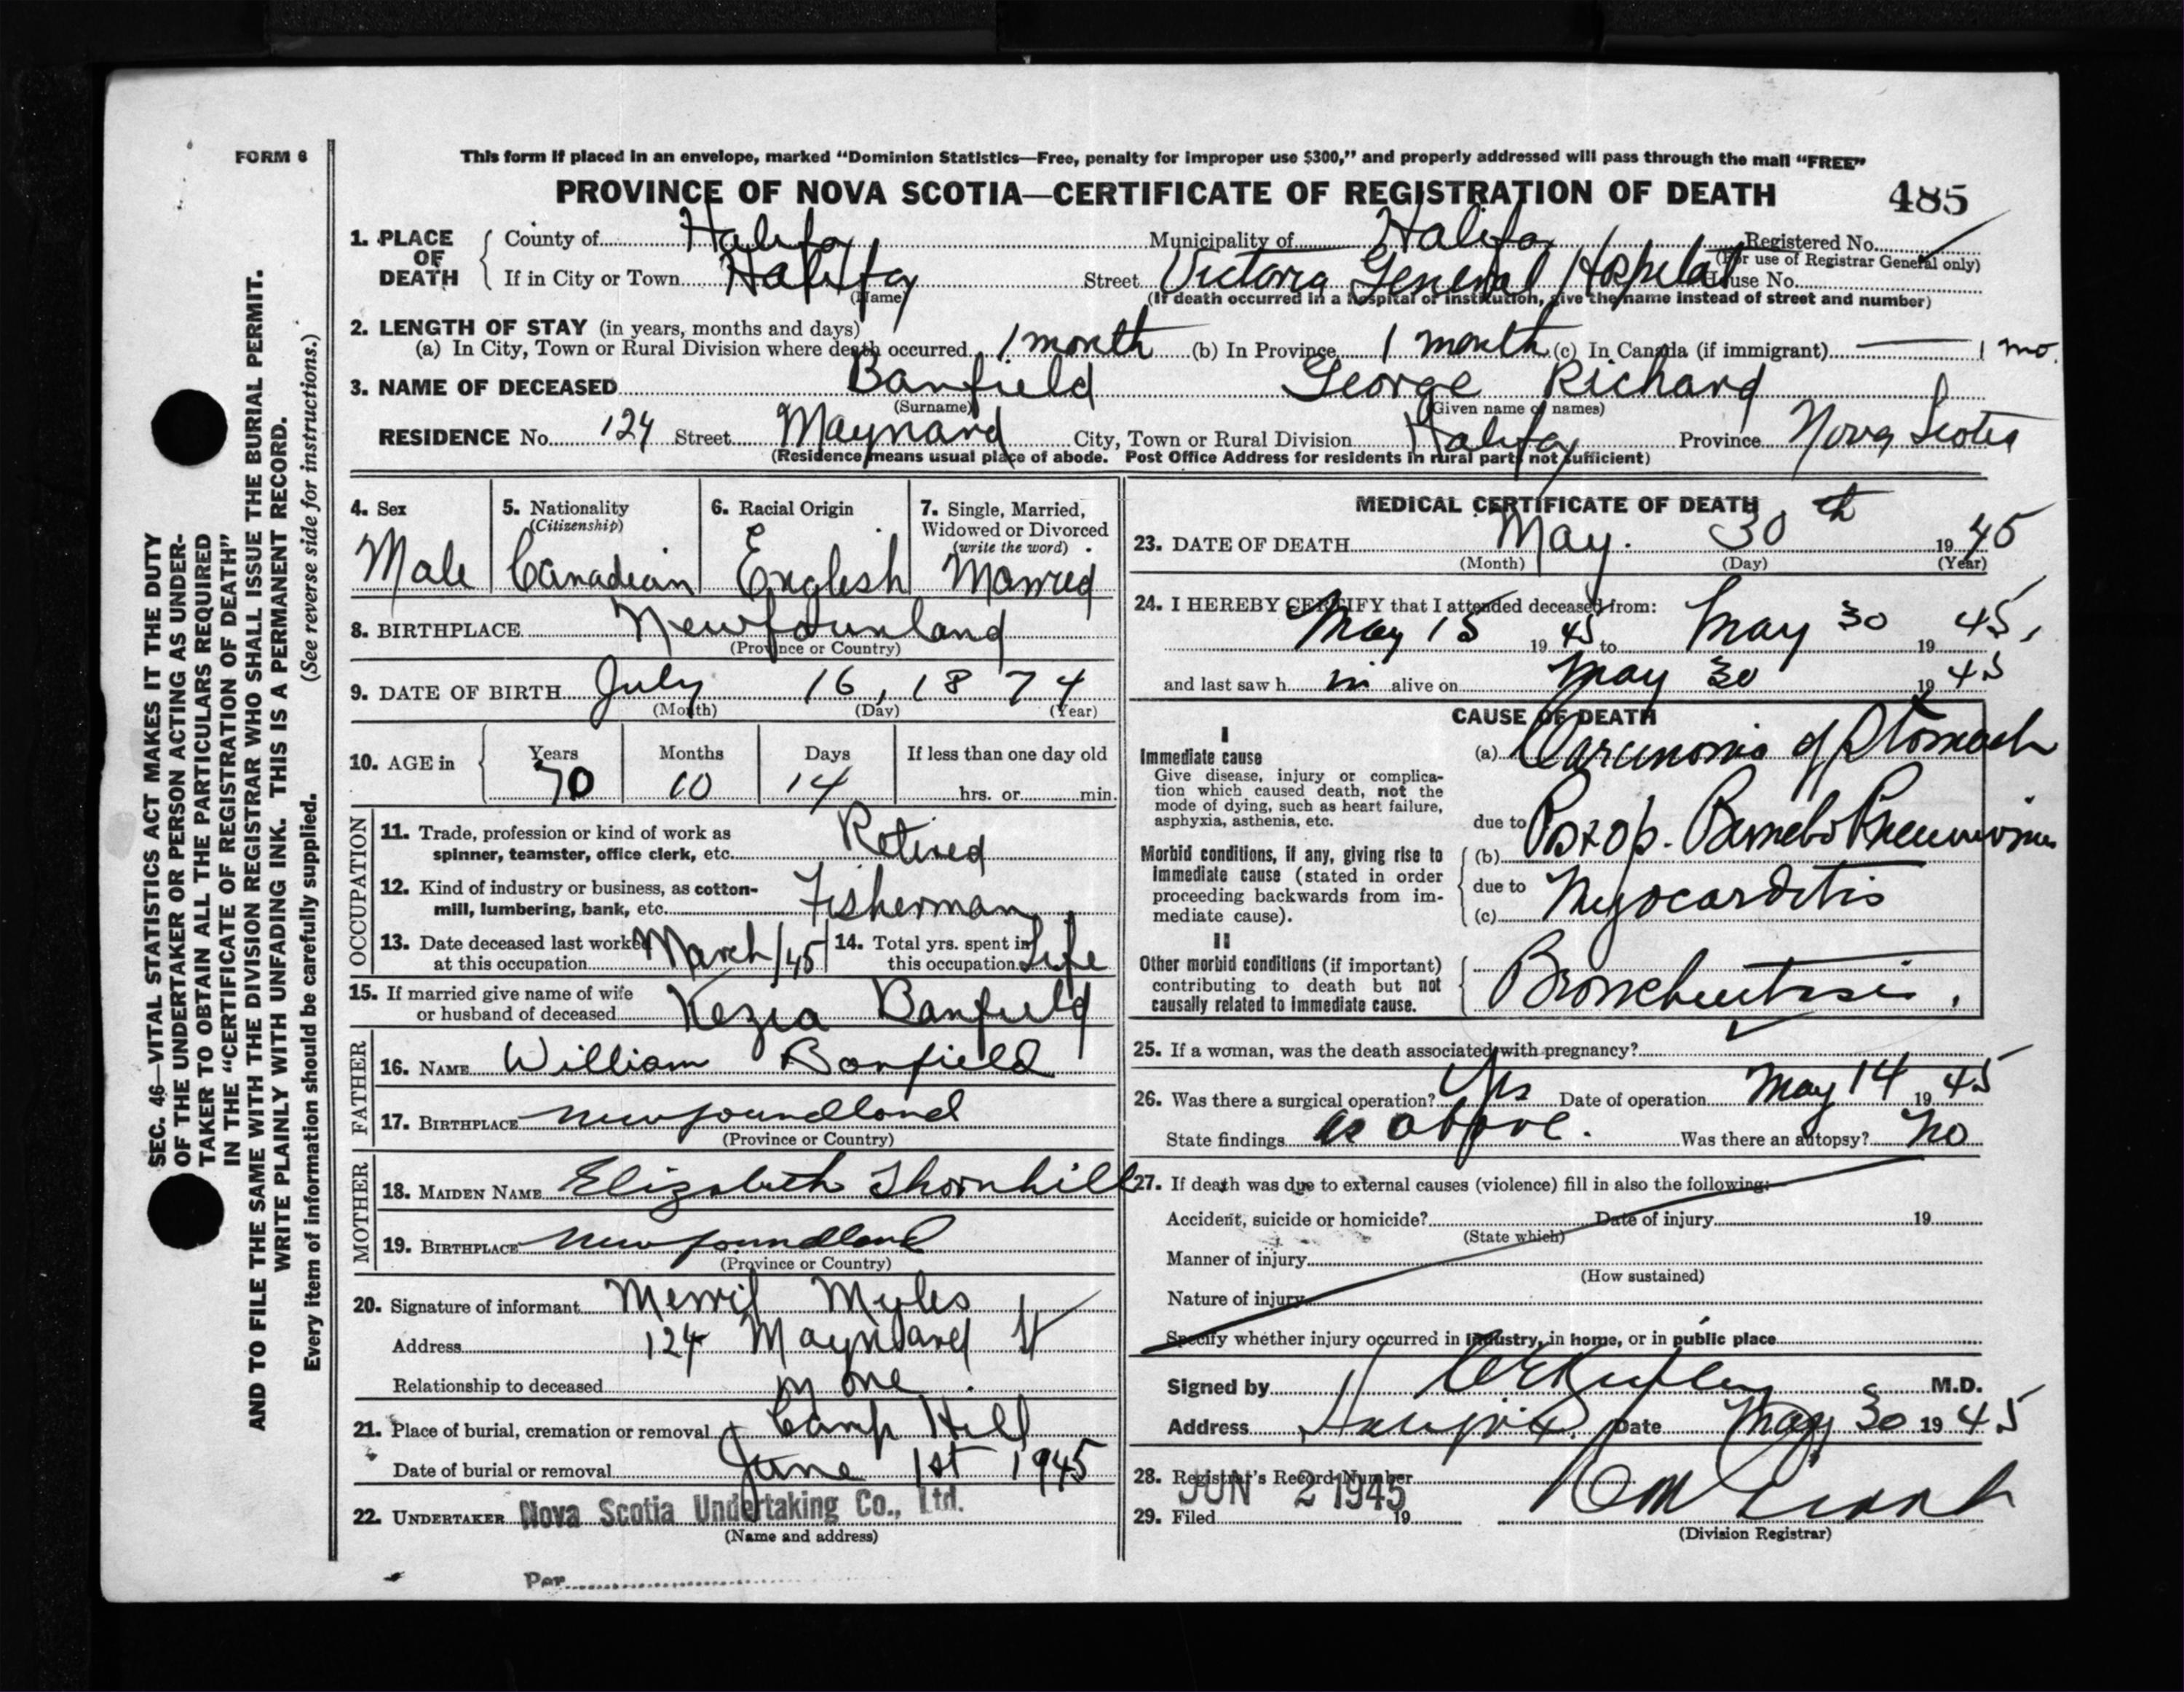 FORM 6
This form if placed in an envelope, marked "Dominion Statistics—Free, penalty for improper use $300," and properly addressed will pass through the mail "FREE"
PROVINCE OF NOVA SCOTIA—CERTIFICATE OF REGISTRATION OF DEATH 485
1. PLACE OF DEATH
County of Halifax Municipality of Halifax Registered No.
(For use of Registrar General only)
If in City or Town Halifax Street Victoria General Hospital House No.
(Name) (If death occurred in a hospital or institution, give the name instead of street and number)
2. LENGTH OF STAY (in years, months and days)
(a) In City, Town or Rural Division where death occurred 1 month (b) In Province 1 month (c) In Canada (if immigrant) 1 mo.
3. NAME OF DECEASED Banfield George Richard
(Surname) (Given name or names)
RESIDENCE No. 124 Street Maynard City, Town or Rural Division Halifax Province Nova Scotia
(Residence means usual place of abode. Post Office Address for residents in rural parts not sufficient)
4. Sex 5. Nationality 6. Racial Origin 7. Single, Married,
(Citizenship) Widowed or Divorced
(write the word)
Male Canadian English Married
8. BIRTHPLACE Newfounland
(Province or Country)
9. DATE OF BIRTH July 16, 1874
(Month) (Day) (Year)
10. AGE in Years Months Days If less than one day old
70 10 14 hrs. or min.
OCCUPATION
11. Trade, profession or kind of work as
spinner, teamster, office clerk, etc. Retired
12. Kind of industry or business, as cotton-
mill, lumbering, bank, etc. Fisherman
13. Date deceased last worked
at this occupation March/45
14. Total yrs. spent in
this occupation Life
15. If married give name of wife
or husband of deceased Kezia Banfield
FATHER
16. NAME William Banfield
17. BIRTHPLACE Newfoundland
(Province or Country)
MOTHER
18. MAIDEN NAME Elizabeth Thornhill
19. BIRTHPLACE Newfoundland
(Province or Country)
20. Signature of informant Myles
Address 124 Maynard St
Relationship to deceased None.
21. Place of burial, cremation or removal Camp Hill
Date of burial or removal June 1st 1945
22. UNDERTAKER Nova Scotia Undertaking Co., Ltd.
(Name and address)
Per
MEDICAL CERTIFICATE OF DEATH
23. DATE OF DEATH May. 30th 1945
(Month) (Day) (Year)
24. I HEREBY CERTIFY that I attended deceased from:
May 15 1945 to May 30 1945,
and last saw h im alive on May 30 1945
CAUSE OF DEATH
I
Immediate cause
Give disease, injury or complica-
tion which caused death, not the
mode of dying, such as heart failure,
asphyxia, asthenia, etc.
(a) Carcinoma of Stomach
due to
Morbid conditions, if any, giving rise to
immediate cause (stated in order
proceeding backwards from im-
mediate cause).
(b) Post op. Broncho Pneumonia
due to
(c) Myocarditis
II
Other morbid conditions (if important)
contributing to death but not
causally related to immediate cause.
Bronchiectasis.
25. If a woman, was the death associated with pregnancy?
26. Was there a surgical operation? Yes Date of operation May 14 1945
State findings as above. Was there an autopsy? No
27. If death was due to external causes (violence) fill in also the following:
Accident, suicide or homicide? Date of injury 19
(State which)
Manner of injury
(How sustained)
Nature of injury
Specify whether injury occurred in industry, in home, or in public place
Signed by M.D.
Address Date May 30 1945
28. Registrar's Record Number
JUN 2 1945
29. Filed 19
(Division Registrar)
SEC. 46—VITAL STATISTICS ACT MAKES IT THE DUTY
OF THE UNDERTAKER OR PERSON ACTING AS UNDER-
TAKER TO OBTAIN ALL THE PARTICULARS REQUIRED
IN THE "CERTIFICATE OF REGISTRATION OF DEATH"
AND TO FILE THE SAME WITH THE DIVISION REGISTRAR WHO SHALL ISSUE THE BURIAL PERMIT.
WRITE PLAINLY WITH UNFADING INK. THIS IS A PERMANENT RECORD.
Every item of information should be carefully supplied. (See reverse side for instructions.)